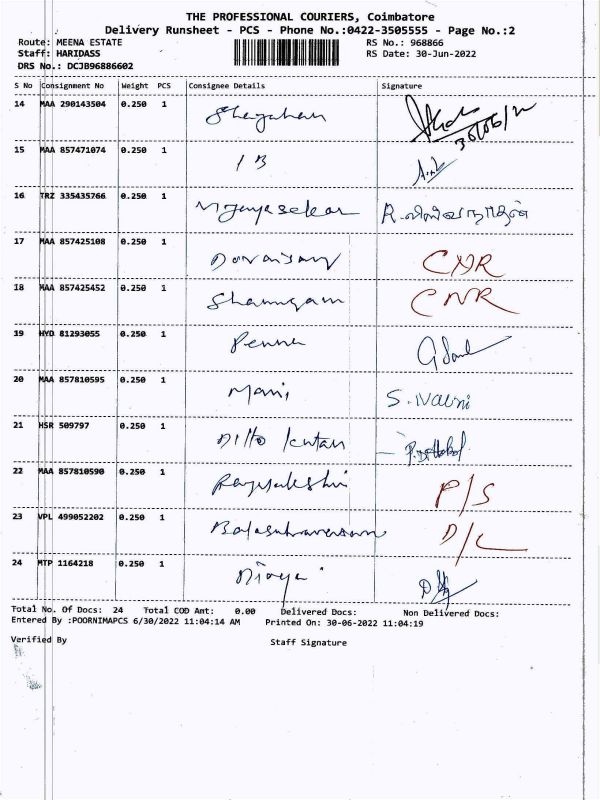 THE PROFESSIONAL COURIERS, Coimbatore
Delivery Runsheet - PCS - Phone No.:0422-3505555 - Page No.:2
Route: MEENA ESTATE
RS No.: 968866
Staff: HARIDASS
RS Date: 30-Jun-2022
DRS No.: DCJB96886602
S No Consignment No Weight PCS Consignee Details Signature
14 MAA 290143504 0.250 1
30/06/22
15 MAA 857471074 0.250 1 1 B
16 TRZ 335435766 0.250 1 R.
17 MAA 857425108 0.250 1 CNR
18 MAA 857425452 0.250 1 Shanmugam CNR
19 HYD 81293055 0.250 1
20 MAA 857810595 0.250 1 Mani S.
21 HSR 509797 0.250 1 Ditto
22 MAA 857810590 0.250 1 P/S
23 VPL 499052202 0.250 1 D/L
24 MTP 1164218 0.250 1
Total No. Of Docs: 24 Total COD Amt: 0.00 Delivered Docs: Non Delivered Docs:
Entered By :POORNIMAPCS 6/30/2022 11:04:14 AM Printed On: 30-06-2022 11:04:19
Verified By Staff Signature